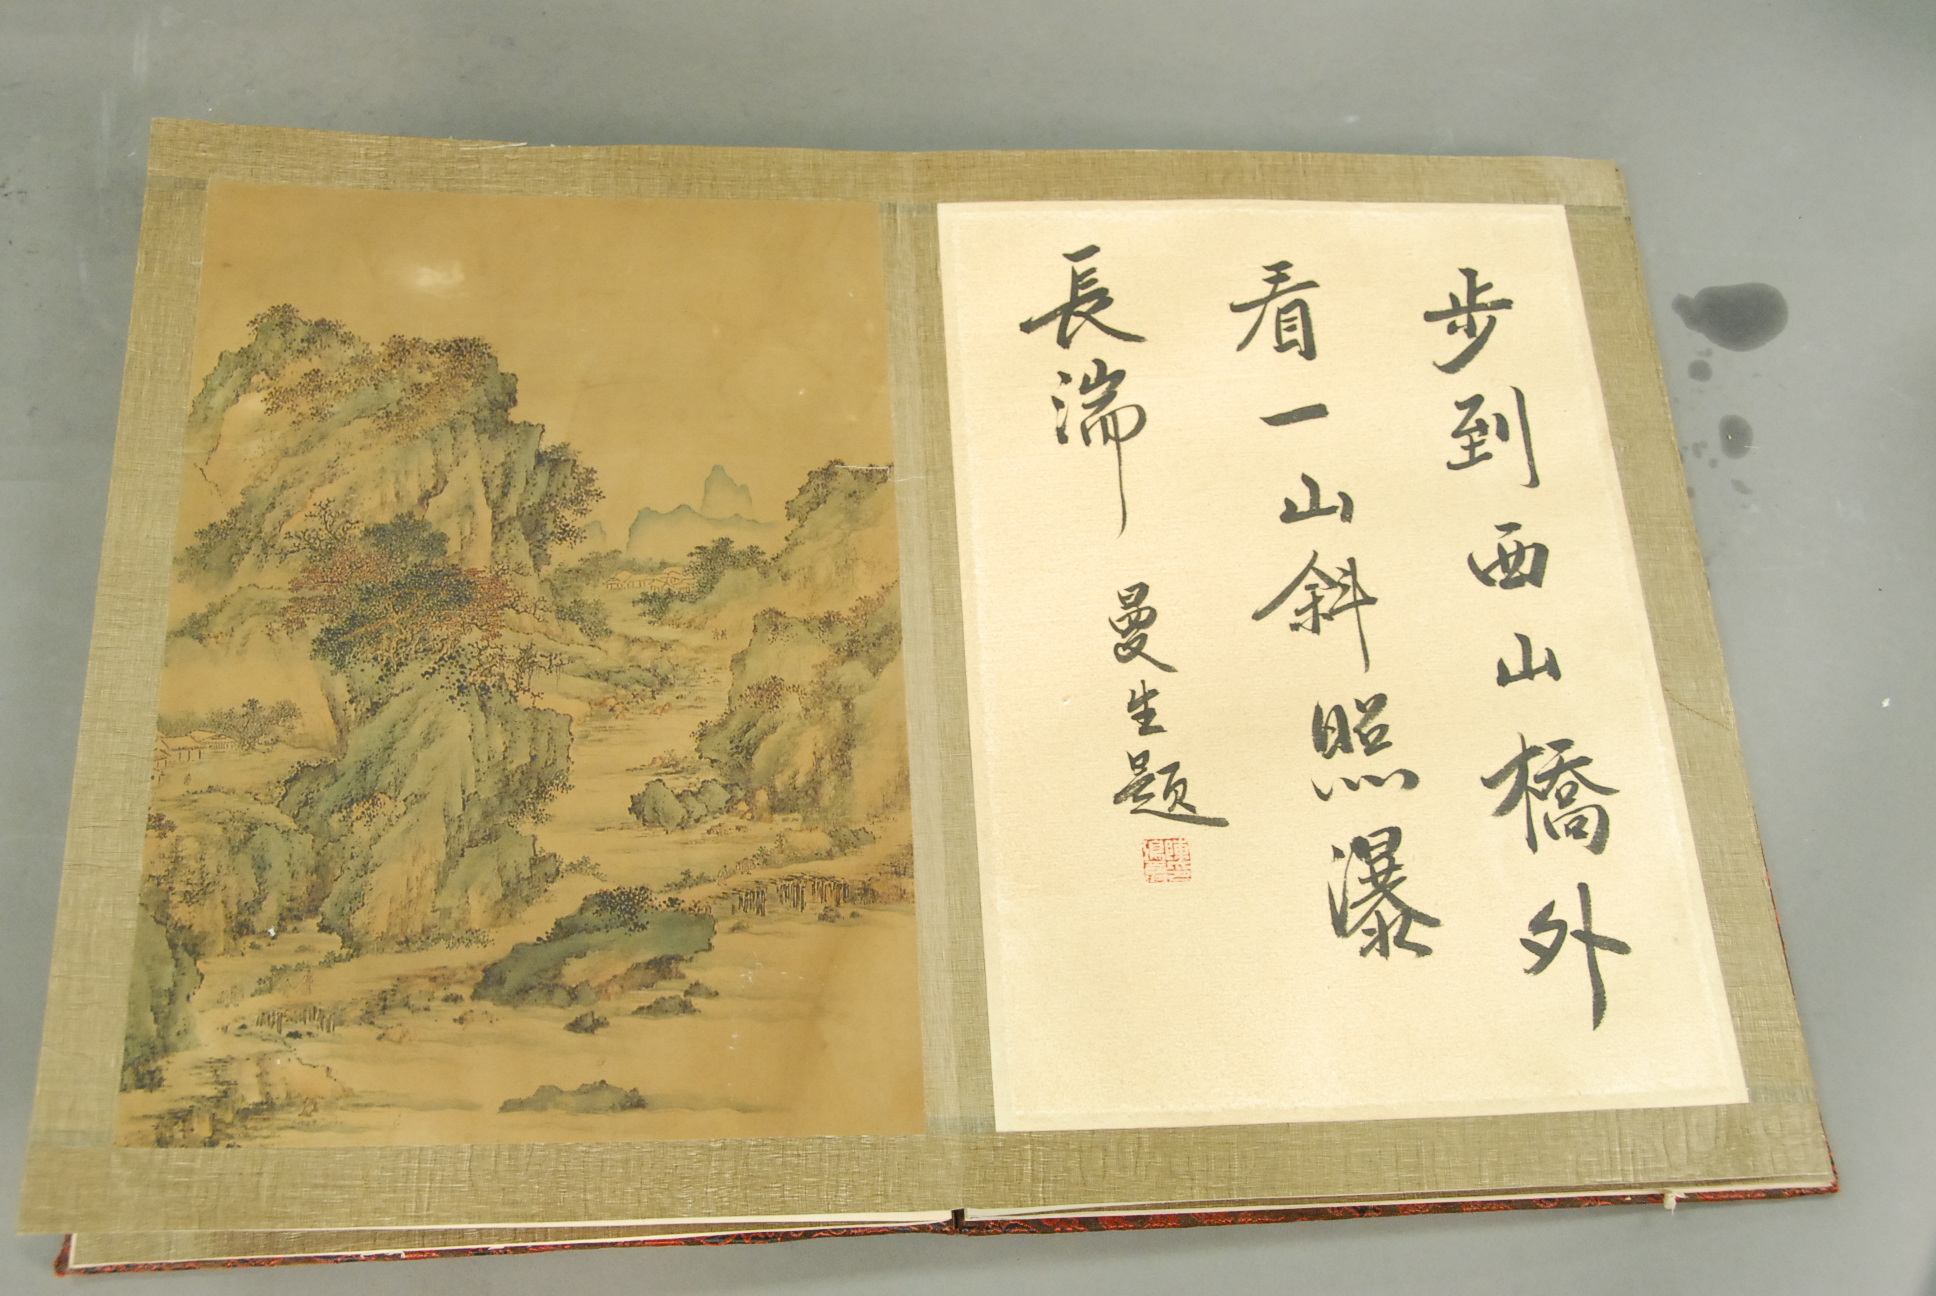 步到西山橋外
看一山斜照瀑
長湍
曼生題